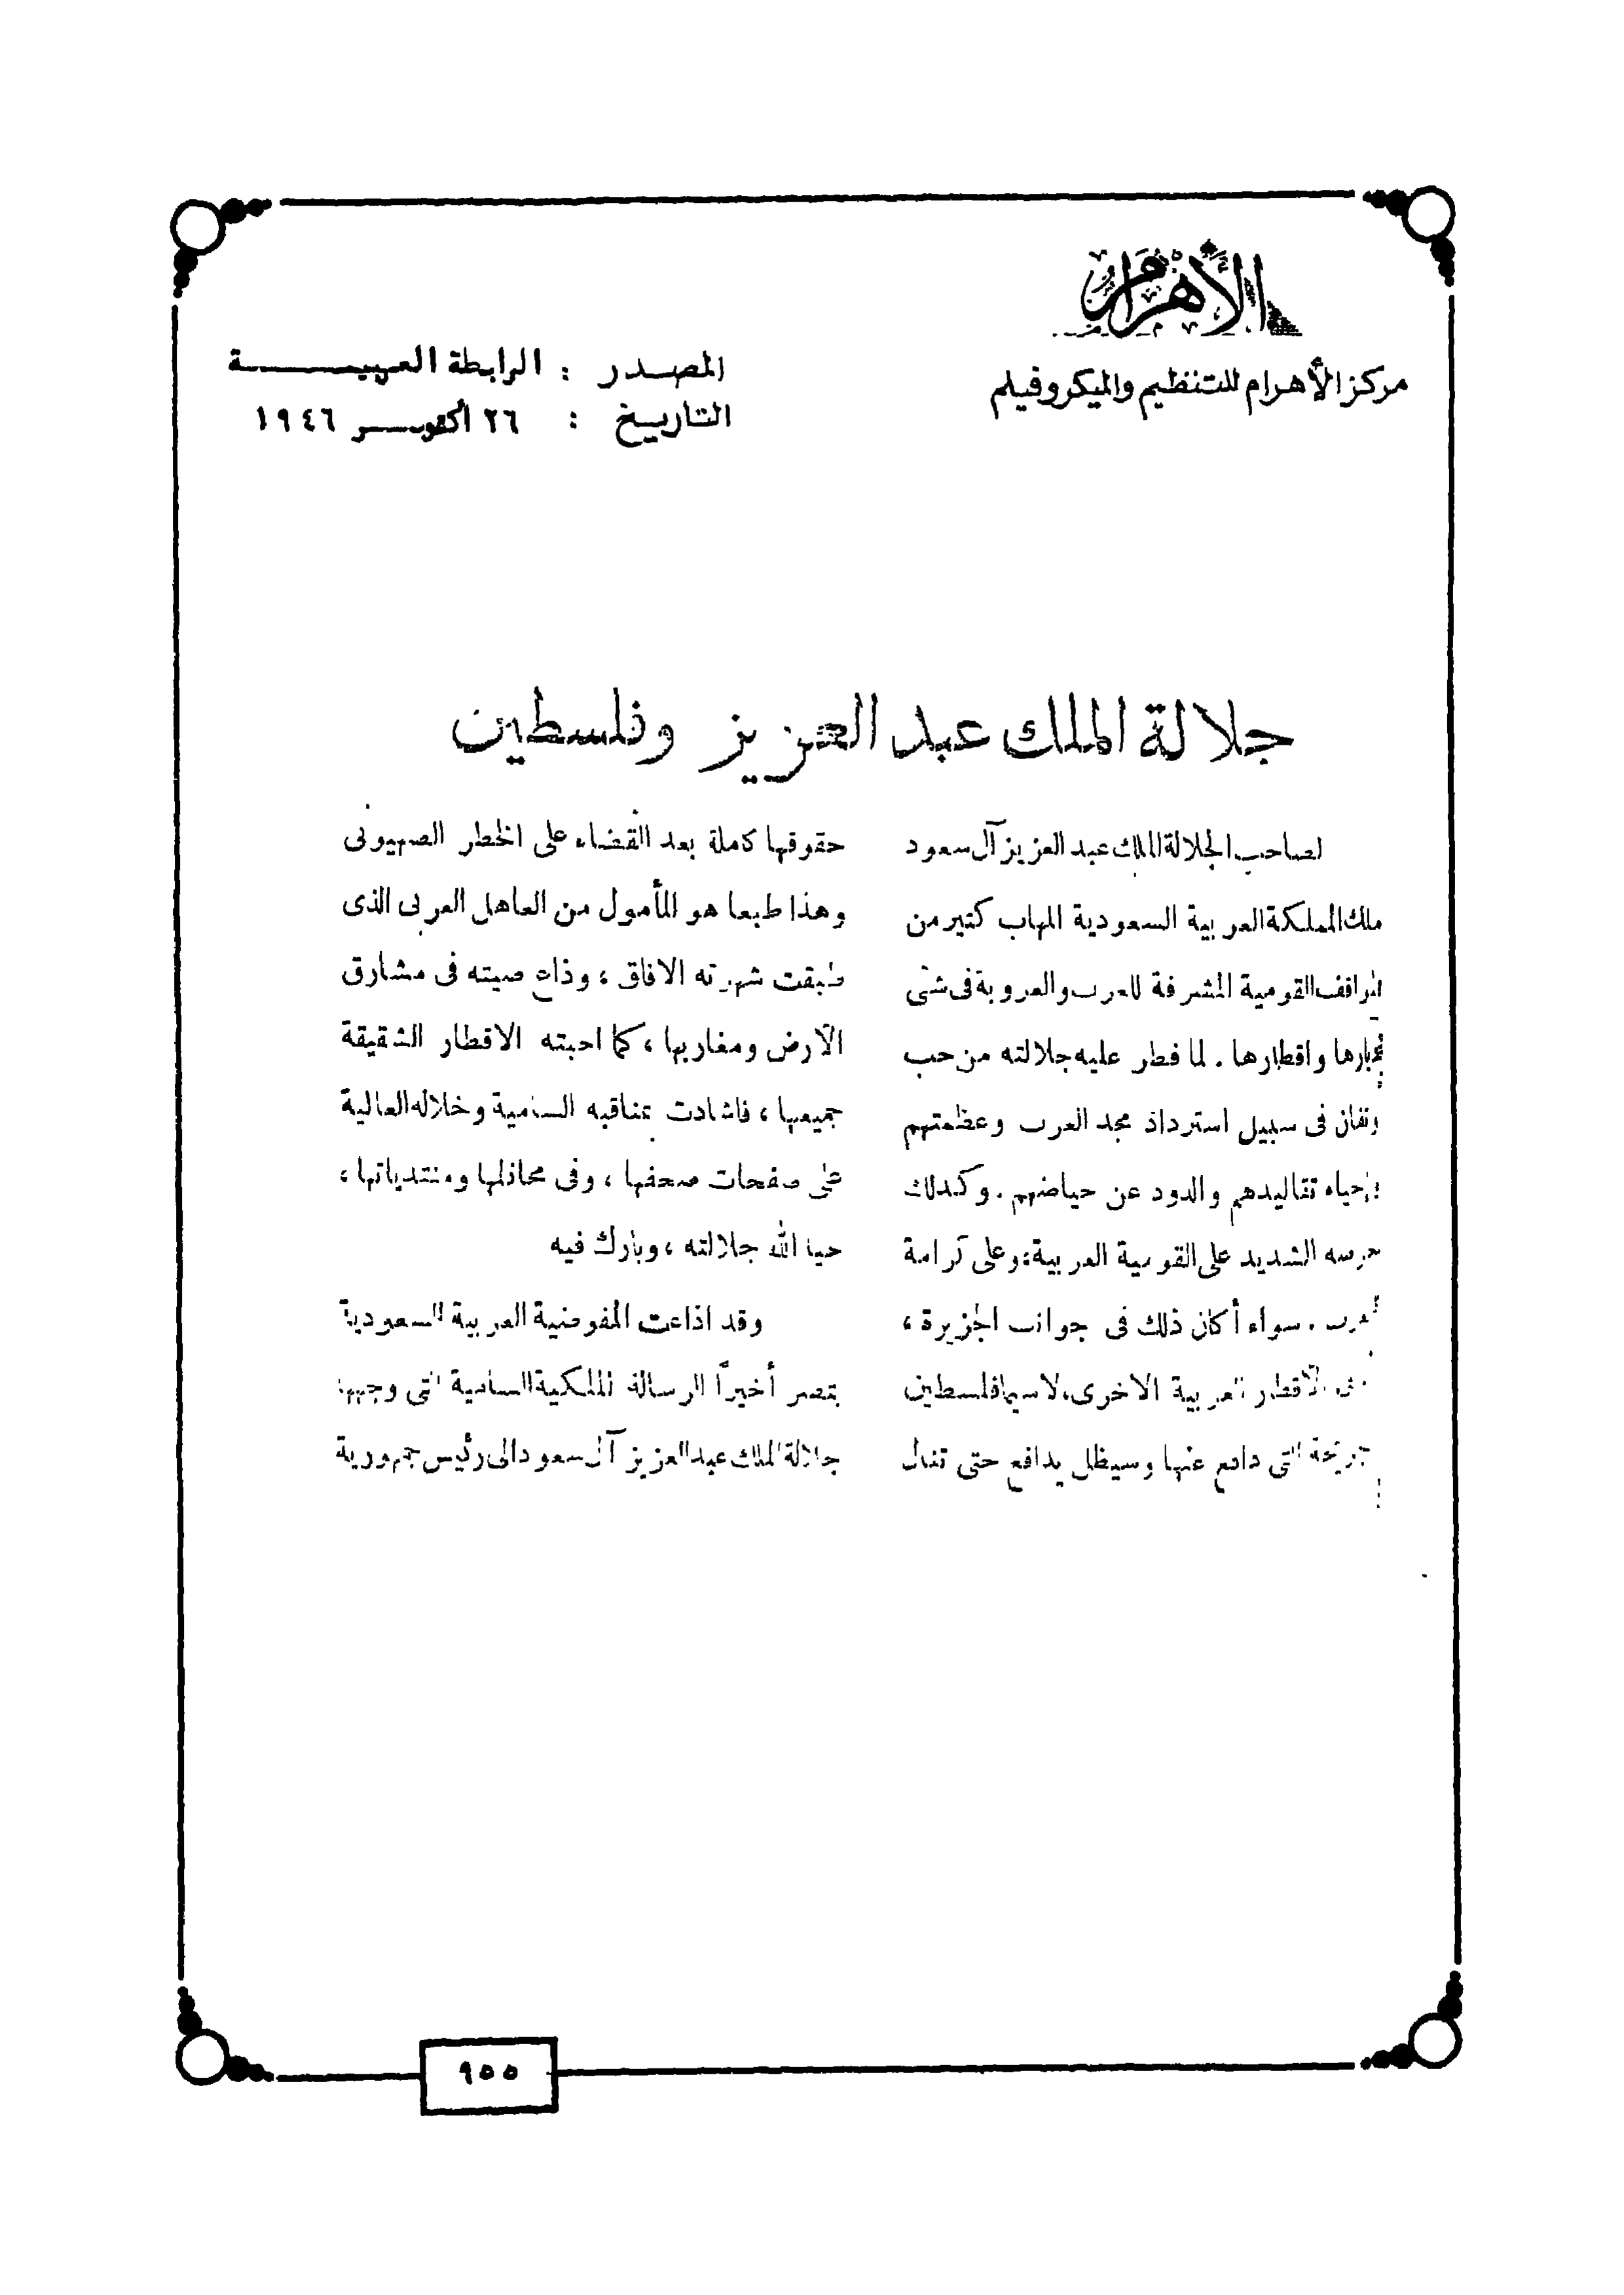 الأهرام
مركز الأهرام للتنظيم والميكروفيلم
المصدر : الرابطة العربية
التاريخ : ٢٦ أكتوبر ١٩٤٦
جلالة الملك عبد العزيز وفلسطين
لصاحب الجلالة الملك عبد العزيز آل سعود
ملك المملكة العربية السعودية المهاب كثير من
المواقف القومية المشرفة للعرب والعروبة فى شتى
واقطارها . لما فطر عليه جلالته من حب
وتفان فى سبيل استرداد مجد العرب وعظمتهم
وإحياء تقاليدهم والذود عن حياضهم . وكذلك
حرصه الشديد على القومية العربية ، وعلى كرامة
العرب . سواء أكان ذلك فى جوانب الجزيرة ،
الاقطار العربية الاخرى ، لا سيما فلسطين
التى دافع عنها وسيظل يدافع حتى تنال
حقوقها كاملة بعد القضاء على الخطر الصهيونى
وهذا طبعا هو المأمول من العاهل العربى الذى
طبقت شهرته الافاق ، وذاع صيته فى مشارق
الأرض ومغاربها ، كما احبته الاقطار الشقيقة
جميعها ، فاشادت بمناقبه السامية وخلاله العالية
على صفحات صحفها ، وفى محافلها ومنتدياتها ،
حيا الله جلالته ، وبارك فيه
وقد اذاعت المفوضية العربية السعودية
بمصر أخيراً الرسالة الملكية السامية التى وجهها
جلالة الملك عبد العزيز آل سعود الى رئيس جمهورية
٩٥٥